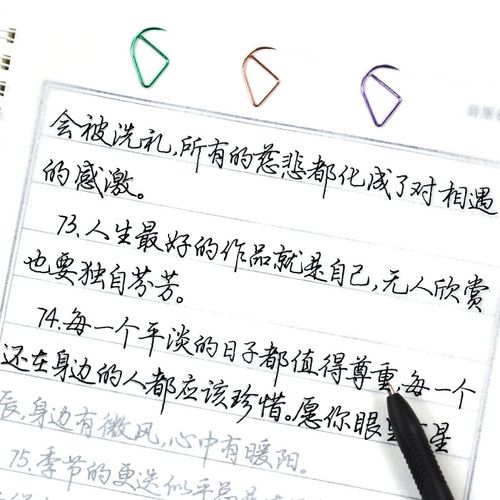 会被洗礼,所有的慈悲都化成了对相遇
的感激。
73.人生最好的作品就是自己,无人欣赏
也要独自芬芳。
74.每一个平淡的日子都值得尊重,每一个
还在身边的人都应该珍惜。愿你眼里有星
辰,身边有微风,心中有暖阳。
75.季节的更迭似乎总是